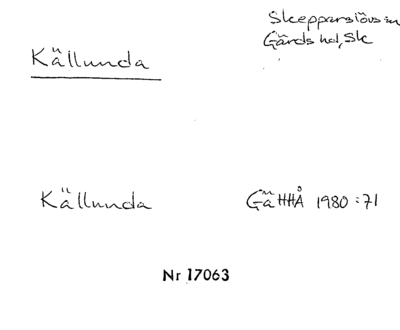 Skepparslövs sn
Gärds hd, Sk
Källunda
Källunda GäHHÅ 1980:71
Nr 17063